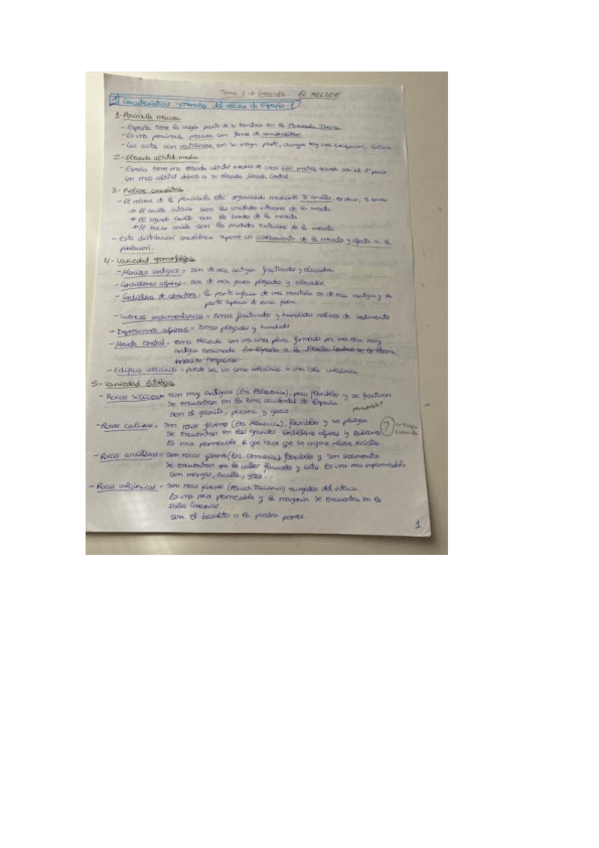 Tema 2 de Geografía EL RELIEVE
1 Características generales del relieve de España
1- Península maciza
- España tiene la mayor parte de su territorio en la Península Ibérica
- Es una península maciza con forma de
- Las costas son rectilíneas, en su mayor parte, aunque hay una excepción, Galicia
2- Elevada altitud media
- España tiene una elevada altitud media de unos 660 metros,
con más altitud debido a su elevada Meseta Central.
3- Relieve concéntrico
- El relieve de la península está organizado mediante 3 anillos,
* El anillo interior son las unidades interiores de la meseta
* El segundo anillo son los bordes de la meseta
* El tercer anillo son las unidades exteriores de la meseta
- Esta distribución concéntrica supone un aislamiento de la meseta y afecta a la
población.
4- Variedad geomorfológica
- Macizos antiguos = son de roca antigua fracturados y elevados
- Cordilleras alpinas = son de roca joven plegados y elevados
- Cordillera de = la parte inferior de una montaña es de roca antigua y la
parte superior de roca joven.
- Cuencas sedimentarias = zonas fracturadas y hundidas rellenas de sedimento
- Depresiones alpinas = zonas plegadas y hundidas
- Meseta Central = zona elevada con una cima plana formada por una roca muy
antigua
- Edificio volcánico = puede ser un cono volcánico o una isla volcánica
5- Variedad litológica
- Rocas silíceas = son muy antiguas (Era Paleozoica), poco flexibles y se fracturan
Se encuentran en la zona occidental de España.
Son el granito, pizarra y gneis
- Rocas calizas = son rocas jóvenes (Era Mesozoica), flexibles y se pliegan
Se encuentran en las grandes cordilleras alpinas y
Es roca permeable, lo que hace que se origine relieve kárstico.
?
- Rocas arcillosas = son rocas jóvenes (Era Cenozoica) flexibles y son sedimentos
Se encuentran en los valles fluviales y Es una roca impermeable
Son margas, arcilla, yeso...
- Rocas volcánicas = son rocas jóvenes surgidas del interior.
Es una roca permeable y la mayoría se encuentra en las
Islas Canarias.
Son el basalto o la piedra pomez.
1